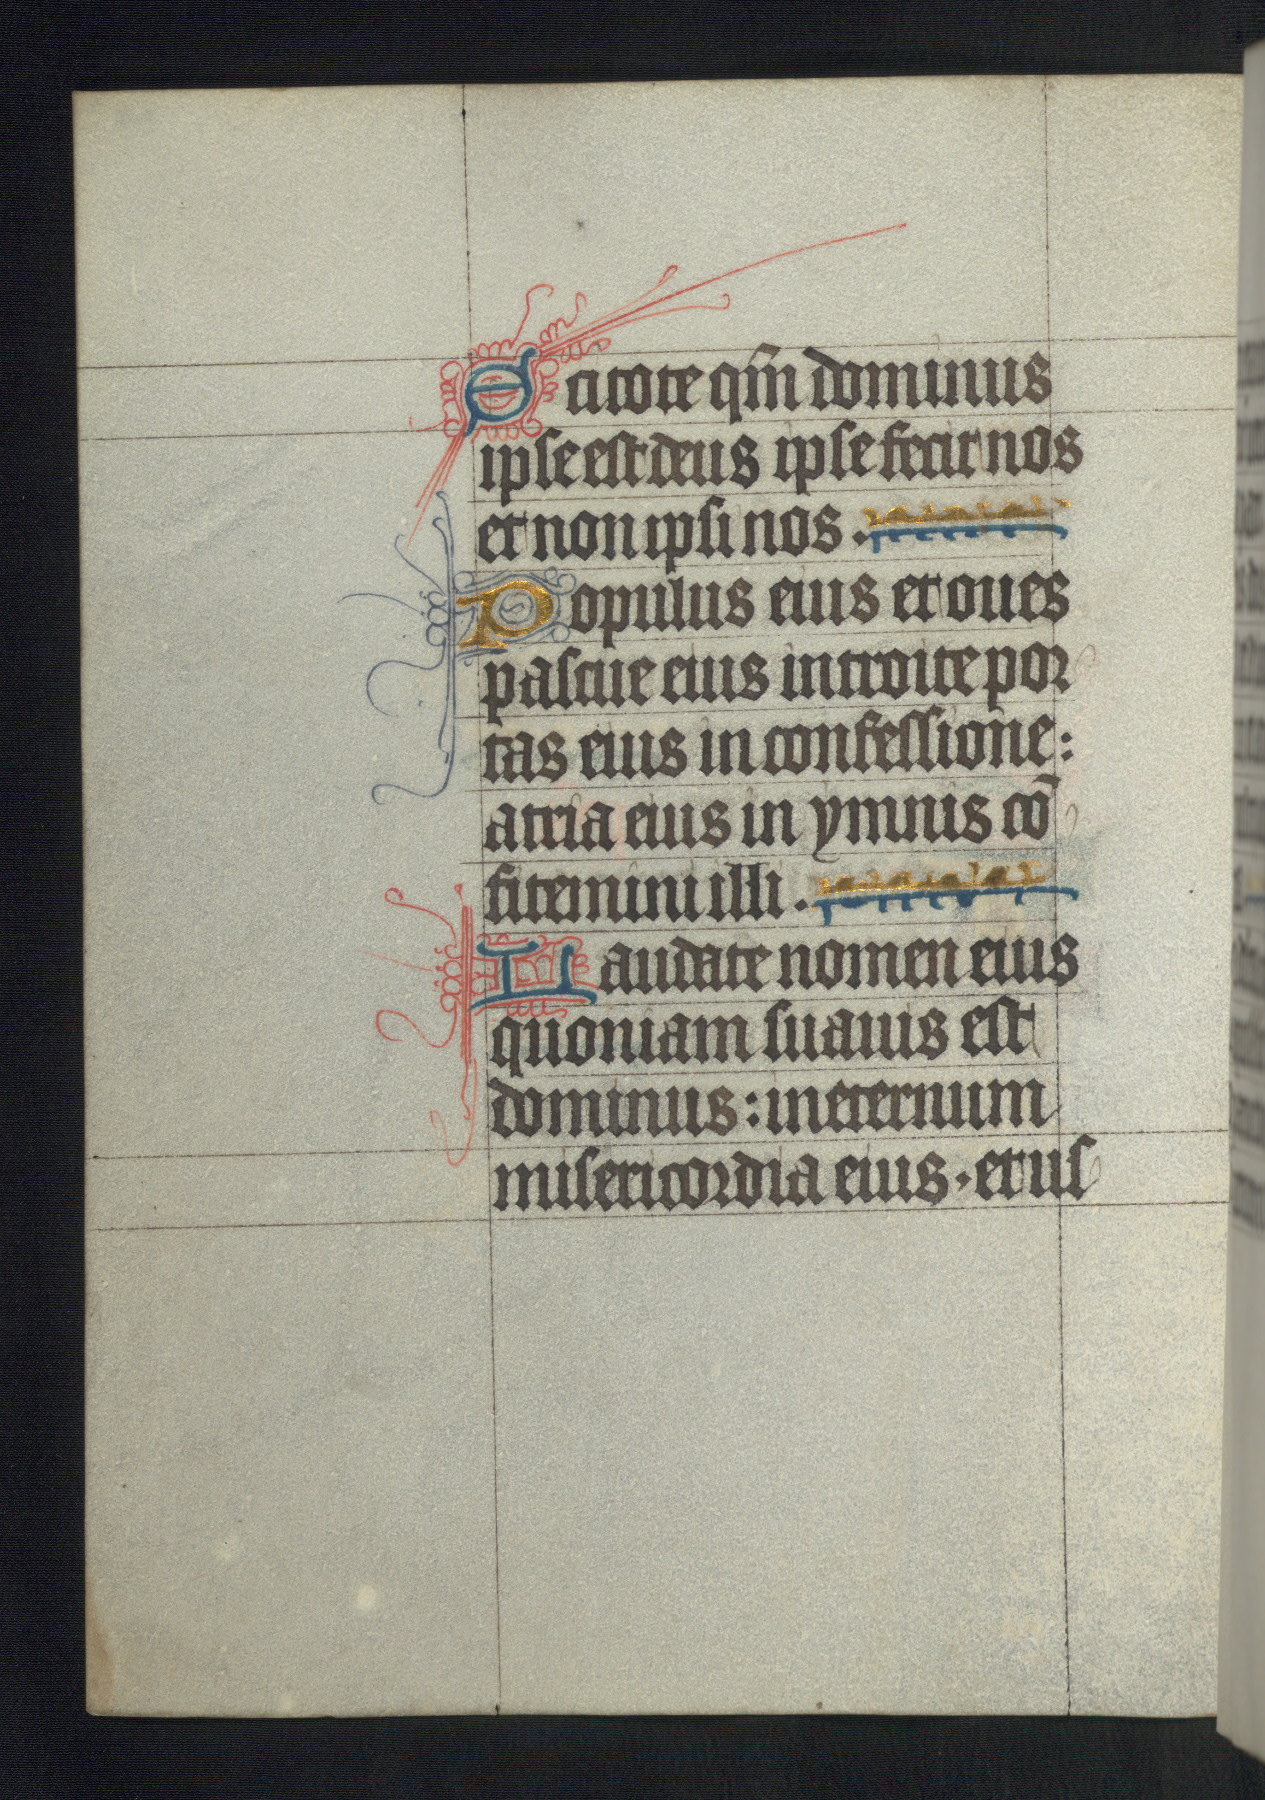 Scitote qm̄ dominus
ipse est deus ipse fecit nos
et non ipsi nos.
Populus eius et oues
pascue eius introite por
tas eius in confessione:
atria eius in ymnis cō
fitemini illi.
Laudate nomen eius
quoniam suauis est
dominus: in eternum
misericordia eius. et us